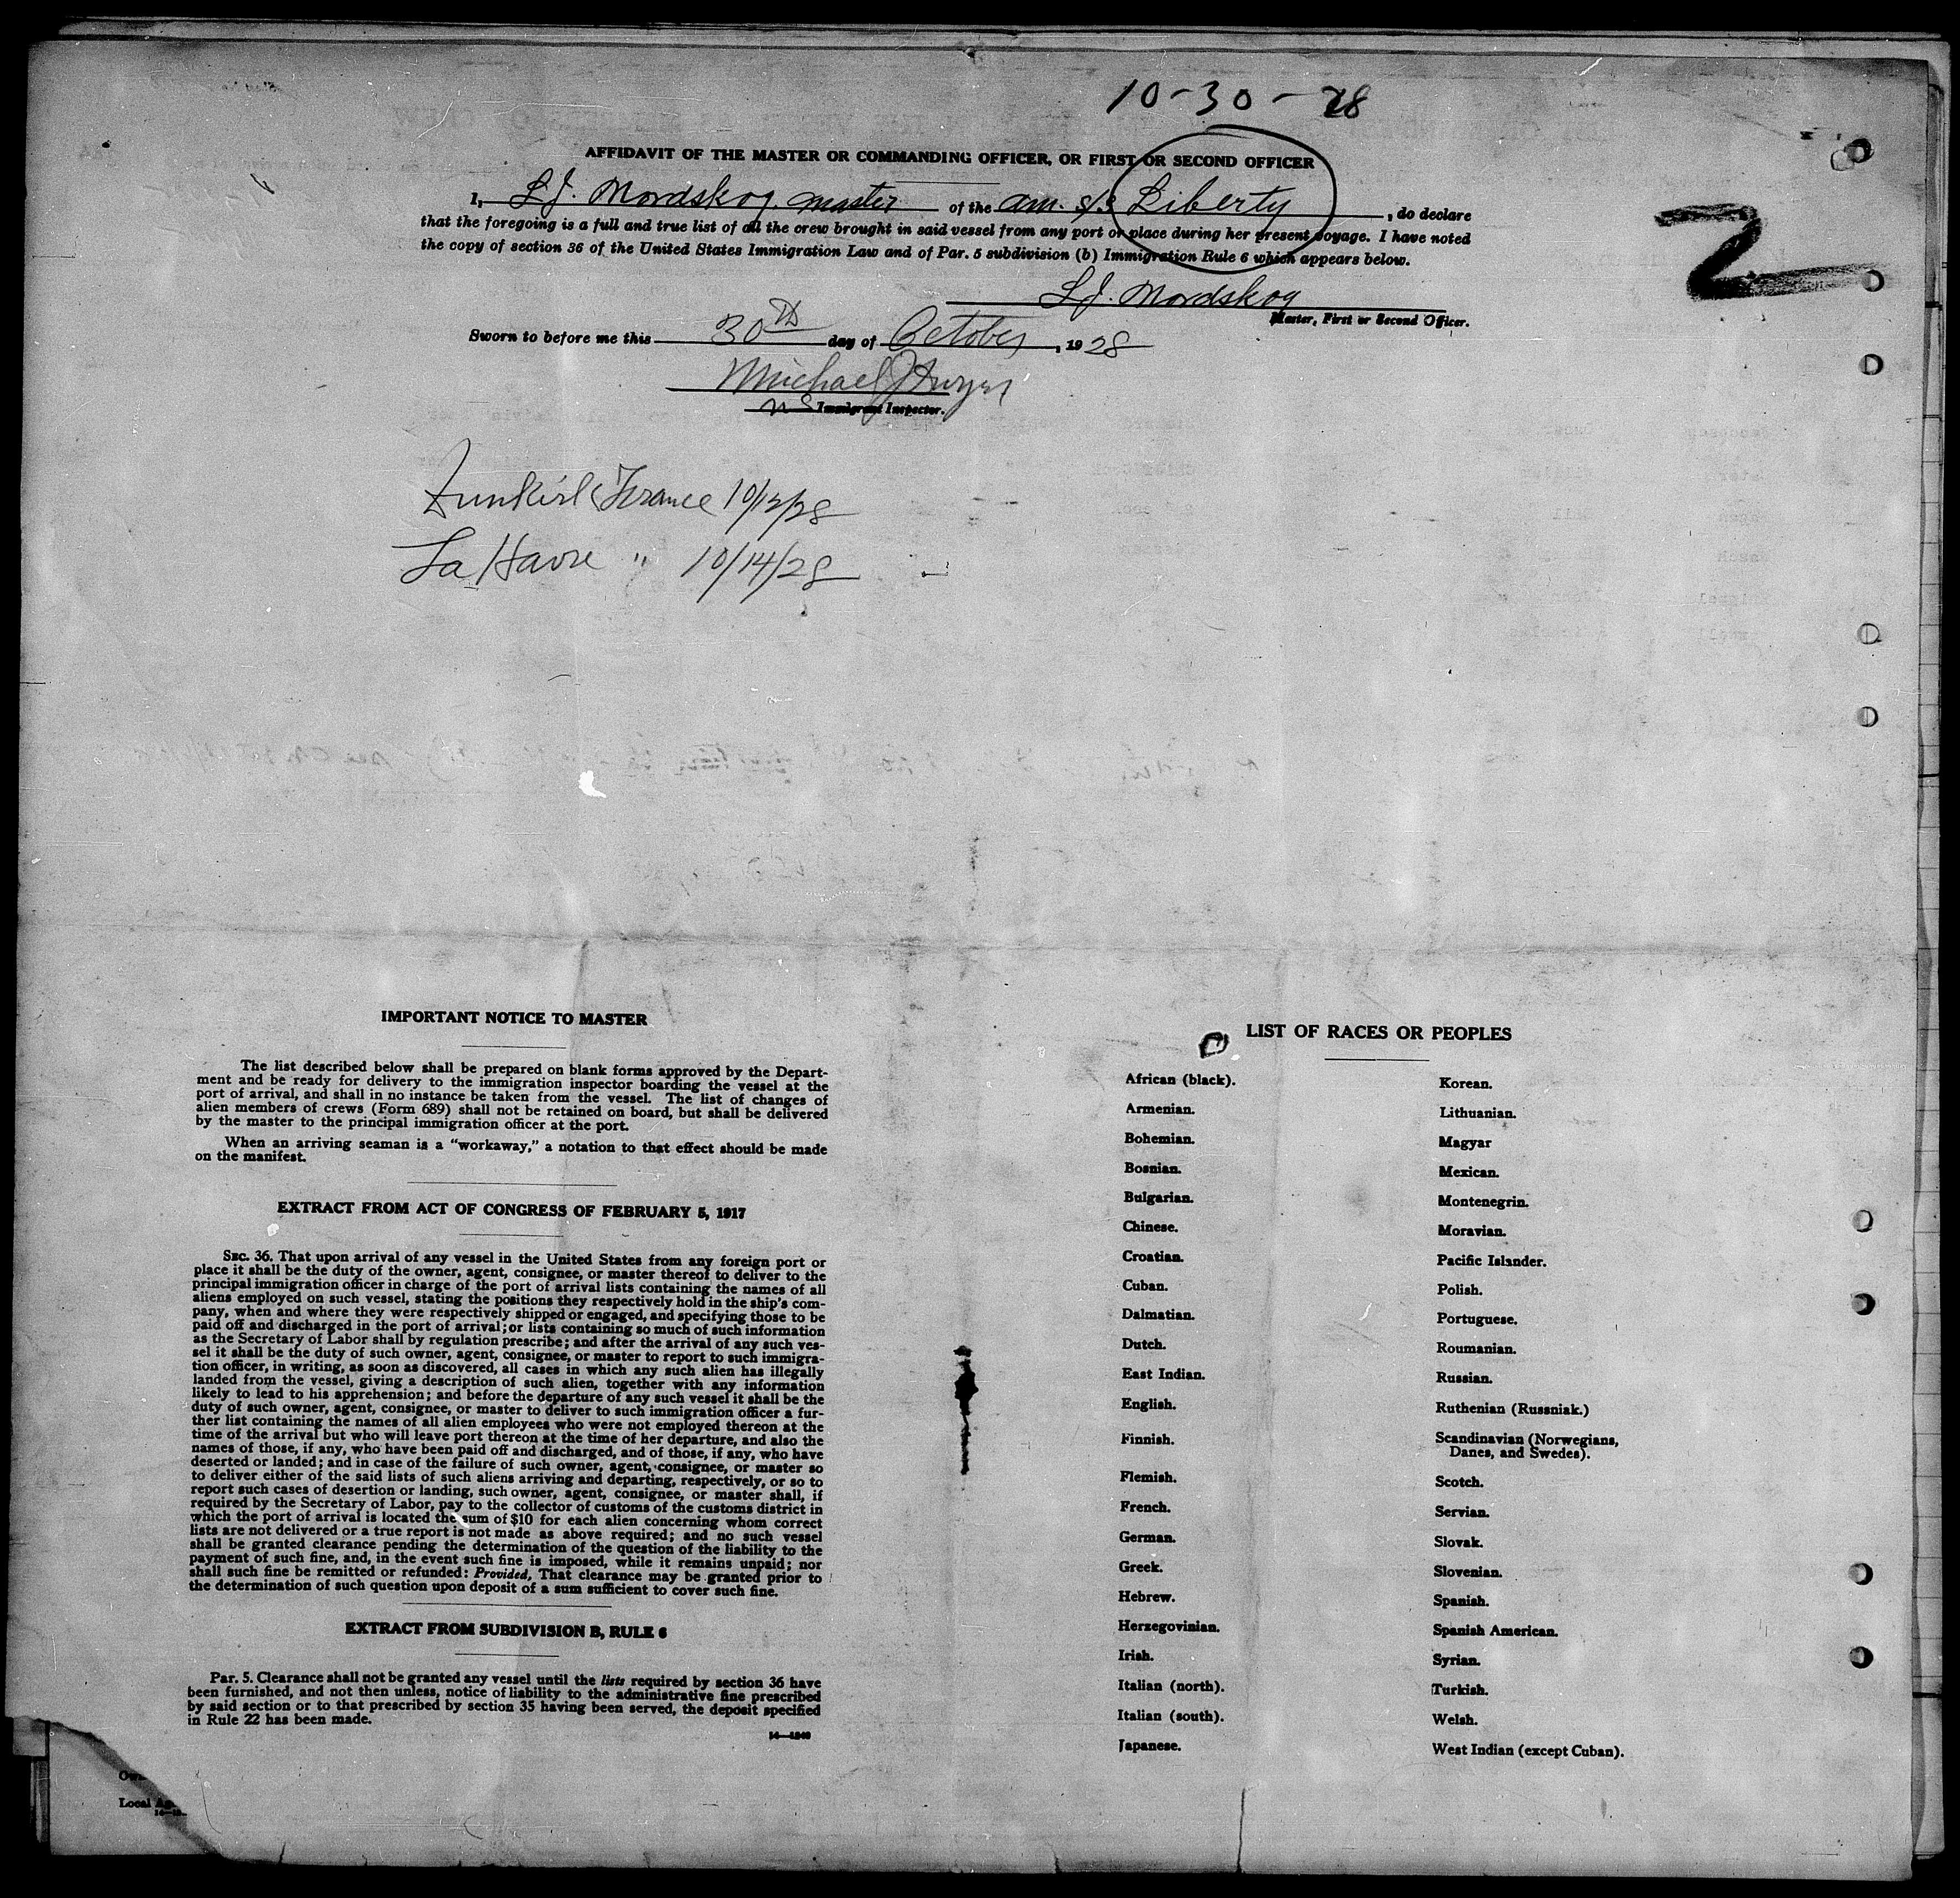 10-30-28
AFFIDAVIT OF THE MASTER OR COMMANDING OFFICER, OR FIRST OR SECOND OFFICER
I, L.J. Nordskog. master of the am. s/s Liberty, do declare
that the foregoing is a full and true list of all the crew brought in said vessel from any port or place during her present voyage. I have noted
the copy of section 36 of the United States Immigration Law and of Par. 5 subdivision (b) Immigration Rule 6 which appears below.
2
L.J. Nordskog
Master, First or Second Officer.
Sworn to before me this 30th day of October, 1928
Michael J Dwyer
Immigrant Inspector.
Dunkirk France 10/12/28
La Havre " 10/14/28
IMPORTANT NOTICE TO MASTER
The list described below shall be prepared on blank forms approved by the Depart-
ment and be ready for delivery to the immigration inspector boarding the vessel at the
port of arrival, and shall in no instance be taken from the vessel. The list of changes of
alien members of crews (Form 689) shall not be retained on board, but shall be delivered
by the master to the principal immigration officer at the port.
When an arriving seaman is a "workaway," a notation to that effect should be made
on the manifest.
EXTRACT FROM ACT OF CONGRESS OF FEBRUARY 5, 1917
SEC. 36. That upon arrival of any vessel in the United States from any foreign port or
place it shall be the duty of the owner, agent, consignee, or master thereof to deliver to the
principal immigration officer in charge of the port of arrival lists containing the names of all
aliens employed on such vessel, stating the positions they respectively hold in the ship's com-
pany, when and where they were respectively shipped or engaged, and specifying those to be
paid off and discharged in the port of arrival; or lists containing so much of such information
as the Secretary of Labor shall by regulation prescribe; and after the arrival of any such ves-
sel it shall be the duty of such owner, agent, consignee, or master to report to such immigra-
tion officer, in writing, as soon as discovered, all cases in which any such alien has illegally
landed from the vessel, giving a description of such alien, together with any information
likely to lead to his apprehension; and before the departure of any such vessel it shall be the
duty of such owner, agent, consignee, or master to deliver to such immigration officer a fur-
ther list containing the names of all alien employees who were not employed thereon at the
time of the arrival but who will leave port thereon at the time of her departure, and also the
names of those, if any, who have been paid off and discharged, and of those, if any, who have
deserted or landed; and in case of the failure of such owner, agent, consignee, or master so
to deliver either of the said lists of such aliens arriving and departing, respectively, or so to
report such cases of desertion or landing, such owner, agent, consignee, or master shall, if
required by the Secretary of Labor, pay to the collector of customs of the customs district in
which the port of arrival is located the sum of $10 for each alien concerning whom correct
lists are not delivered or a true report is not made as above required; and no such vessel
shall be granted clearance pending the determination of the question of the liability to the
payment of such fine, and, in the event such fine is imposed, while it remains unpaid; nor
shall such fine be remitted or refunded: Provided, That clearance may be granted prior to
the determination of such question upon deposit of a sum sufficient to cover such fine.
EXTRACT FROM SUBDIVISION B, RULE 6
Par. 5. Clearance shall not be granted any vessel until the lists required by section 36 have
been furnished, and not then unless, notice of liability to the administrative fine prescribed
by said section or to that prescribed by section 35 having been served, the deposit specified
in Rule 22 has been made.
Local
LIST OF RACES OR PEOPLES
African (black).
Armenian.
Bohemian.
Bosnian.
Bulgarian.
Chinese.
Croatian.
Cuban.
Dalmatian.
Dutch.
East Indian.
English.
Finnish.
Flemish.
French.
German.
Greek.
Hebrew.
Herzegovinian.
Irish.
Italian (north).
Italian (south).
Japanese.
Korean.
Lithuanian.
Magyar
Mexican.
Montenegrin.
Moravian.
Pacific Islander.
Polish.
Portuguese.
Roumanian.
Russian.
Ruthenian (Russniak.)
Scandinavian (Norwegians,
Danes, and Swedes).
Scotch.
Servian.
Slovak.
Slovenian.
Spanish.
Spanish American.
Syrian.
Turkish.
Welsh.
West Indian (except Cuban).